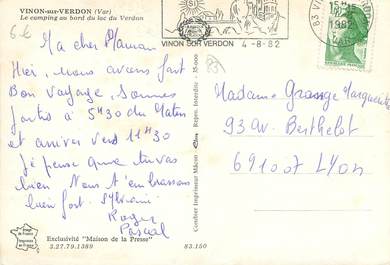 VINON-sur-VERDON (Var)
Le camping au bord du lac du Verdon
VINON SUR VERDON 4-8-82
83 VINON
1982
VAR
Ma cher Maman
Hier, nous avons fait
Bon voyage, sommes
partis à 5H30 du Matin
et arriver vers 11H30
Je pense que tu vas
bien Nous t'embrassons
bien fort. Sylviane
Roger
Pascal
Madame Grange Marguerite
93 Av. Berthelot
691007 LYON
Combier Imprimeur Mâcon
Repro. Interdite
Image de France
Imprimée en France
Exclusivité "Maison de la Presse"
3.27.79.1389
83.150